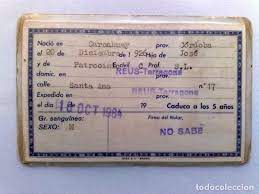 Nació en Carcabuey prov. Córdoba
el 20 de Diciembre 1926 Hijo de José
y de Patrocinio E. civil C Prof. S.L.
domic. en REUS-Tarragona prov.
calle Santa Ana n.º 17
Expedido en REUS-Tarragona
el 18 OCT 1964 19 Caduca a los 5 años
Gr. sanguíneo: Firma del titular,
SEXO: M NO SABE
todocoleccion